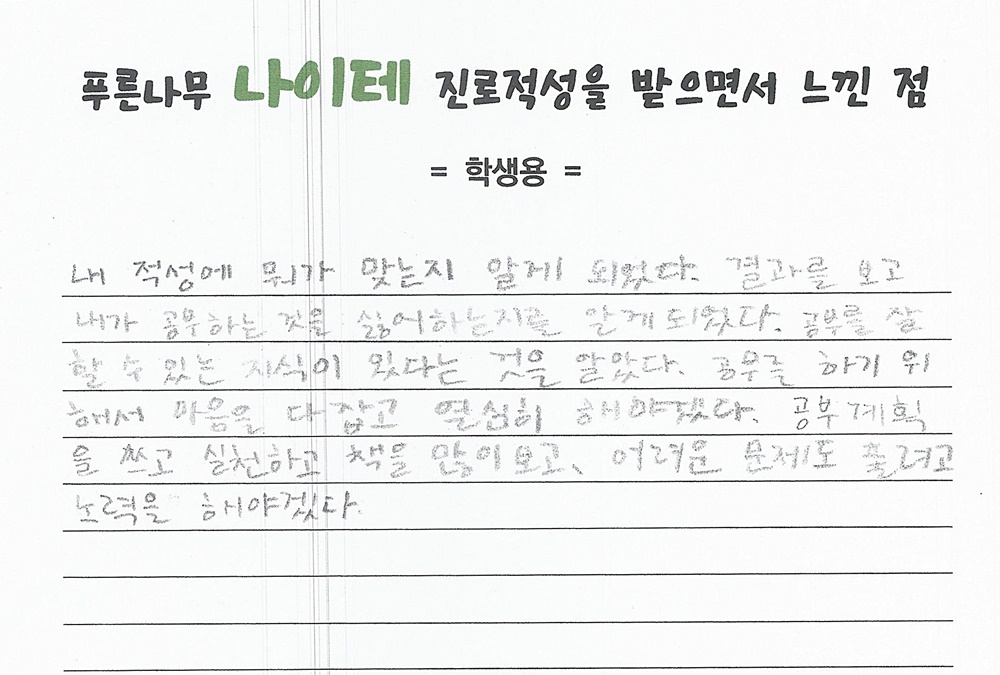 푸른나무 나이테 진로적성을 받으면서 느낀 점
= 학생용 =
내 적성에 뭐가 맞는지 알게 되었다. 결과를 보고
내가 공부하는 것을 싫어하는지를 알게 되었다. 공부를 잘
할 수 있는 지식이 있다는 것을 알았다. 공부를 하기 위
해서 마음을 다잡고 열심히 해야겠다. 공부계획
을 쓰고 실천하고 책을 많이 보고, 어려운 문제도 풀려고
노력을 해야겠다.